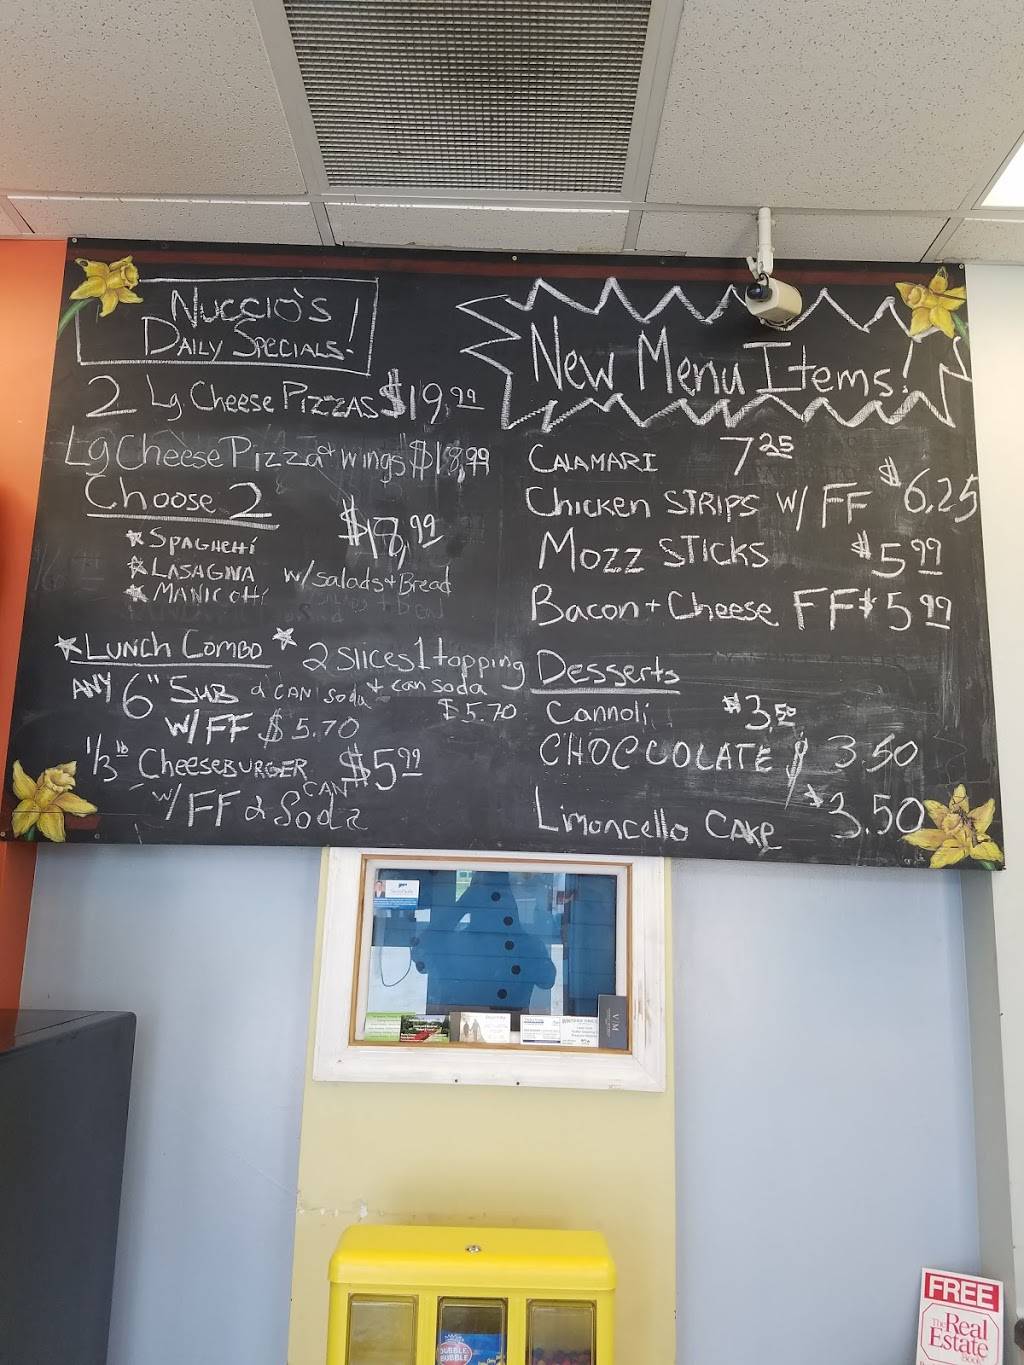 NUCCIO'S
DAILY SPECIALS!
2 Lg CHEESE PIZZAS $19.99
Lg CHEESE PIZZA & WINGS $18,99
CHOOSE 2
$18,99
★ SPAGHETTI
★ LASAGNA
★ MANICOTTI
w/salads + Bread
★ LUNCH COMBO ★
2 slices 1 topping
+ can soda
$5.70
ANY 6" SUB & CAN soda
W/FF $5.70
1/3 lb CHEESEBURGER $5.99
W/FF & CAN Soda
New Menu Items!
CALAMARI 7.25
Chicken STRIPS W/ FF $6,25
MOZZ STICKS $5.99
Bacon + Cheese FF $5.99
Desserts
Cannoli $3.50
CHOCCOLATE $3.50
Limoncello CAKE $3.50
V/M
DUBBLE
BUBBLE
FREE
The Real
Estate
Book